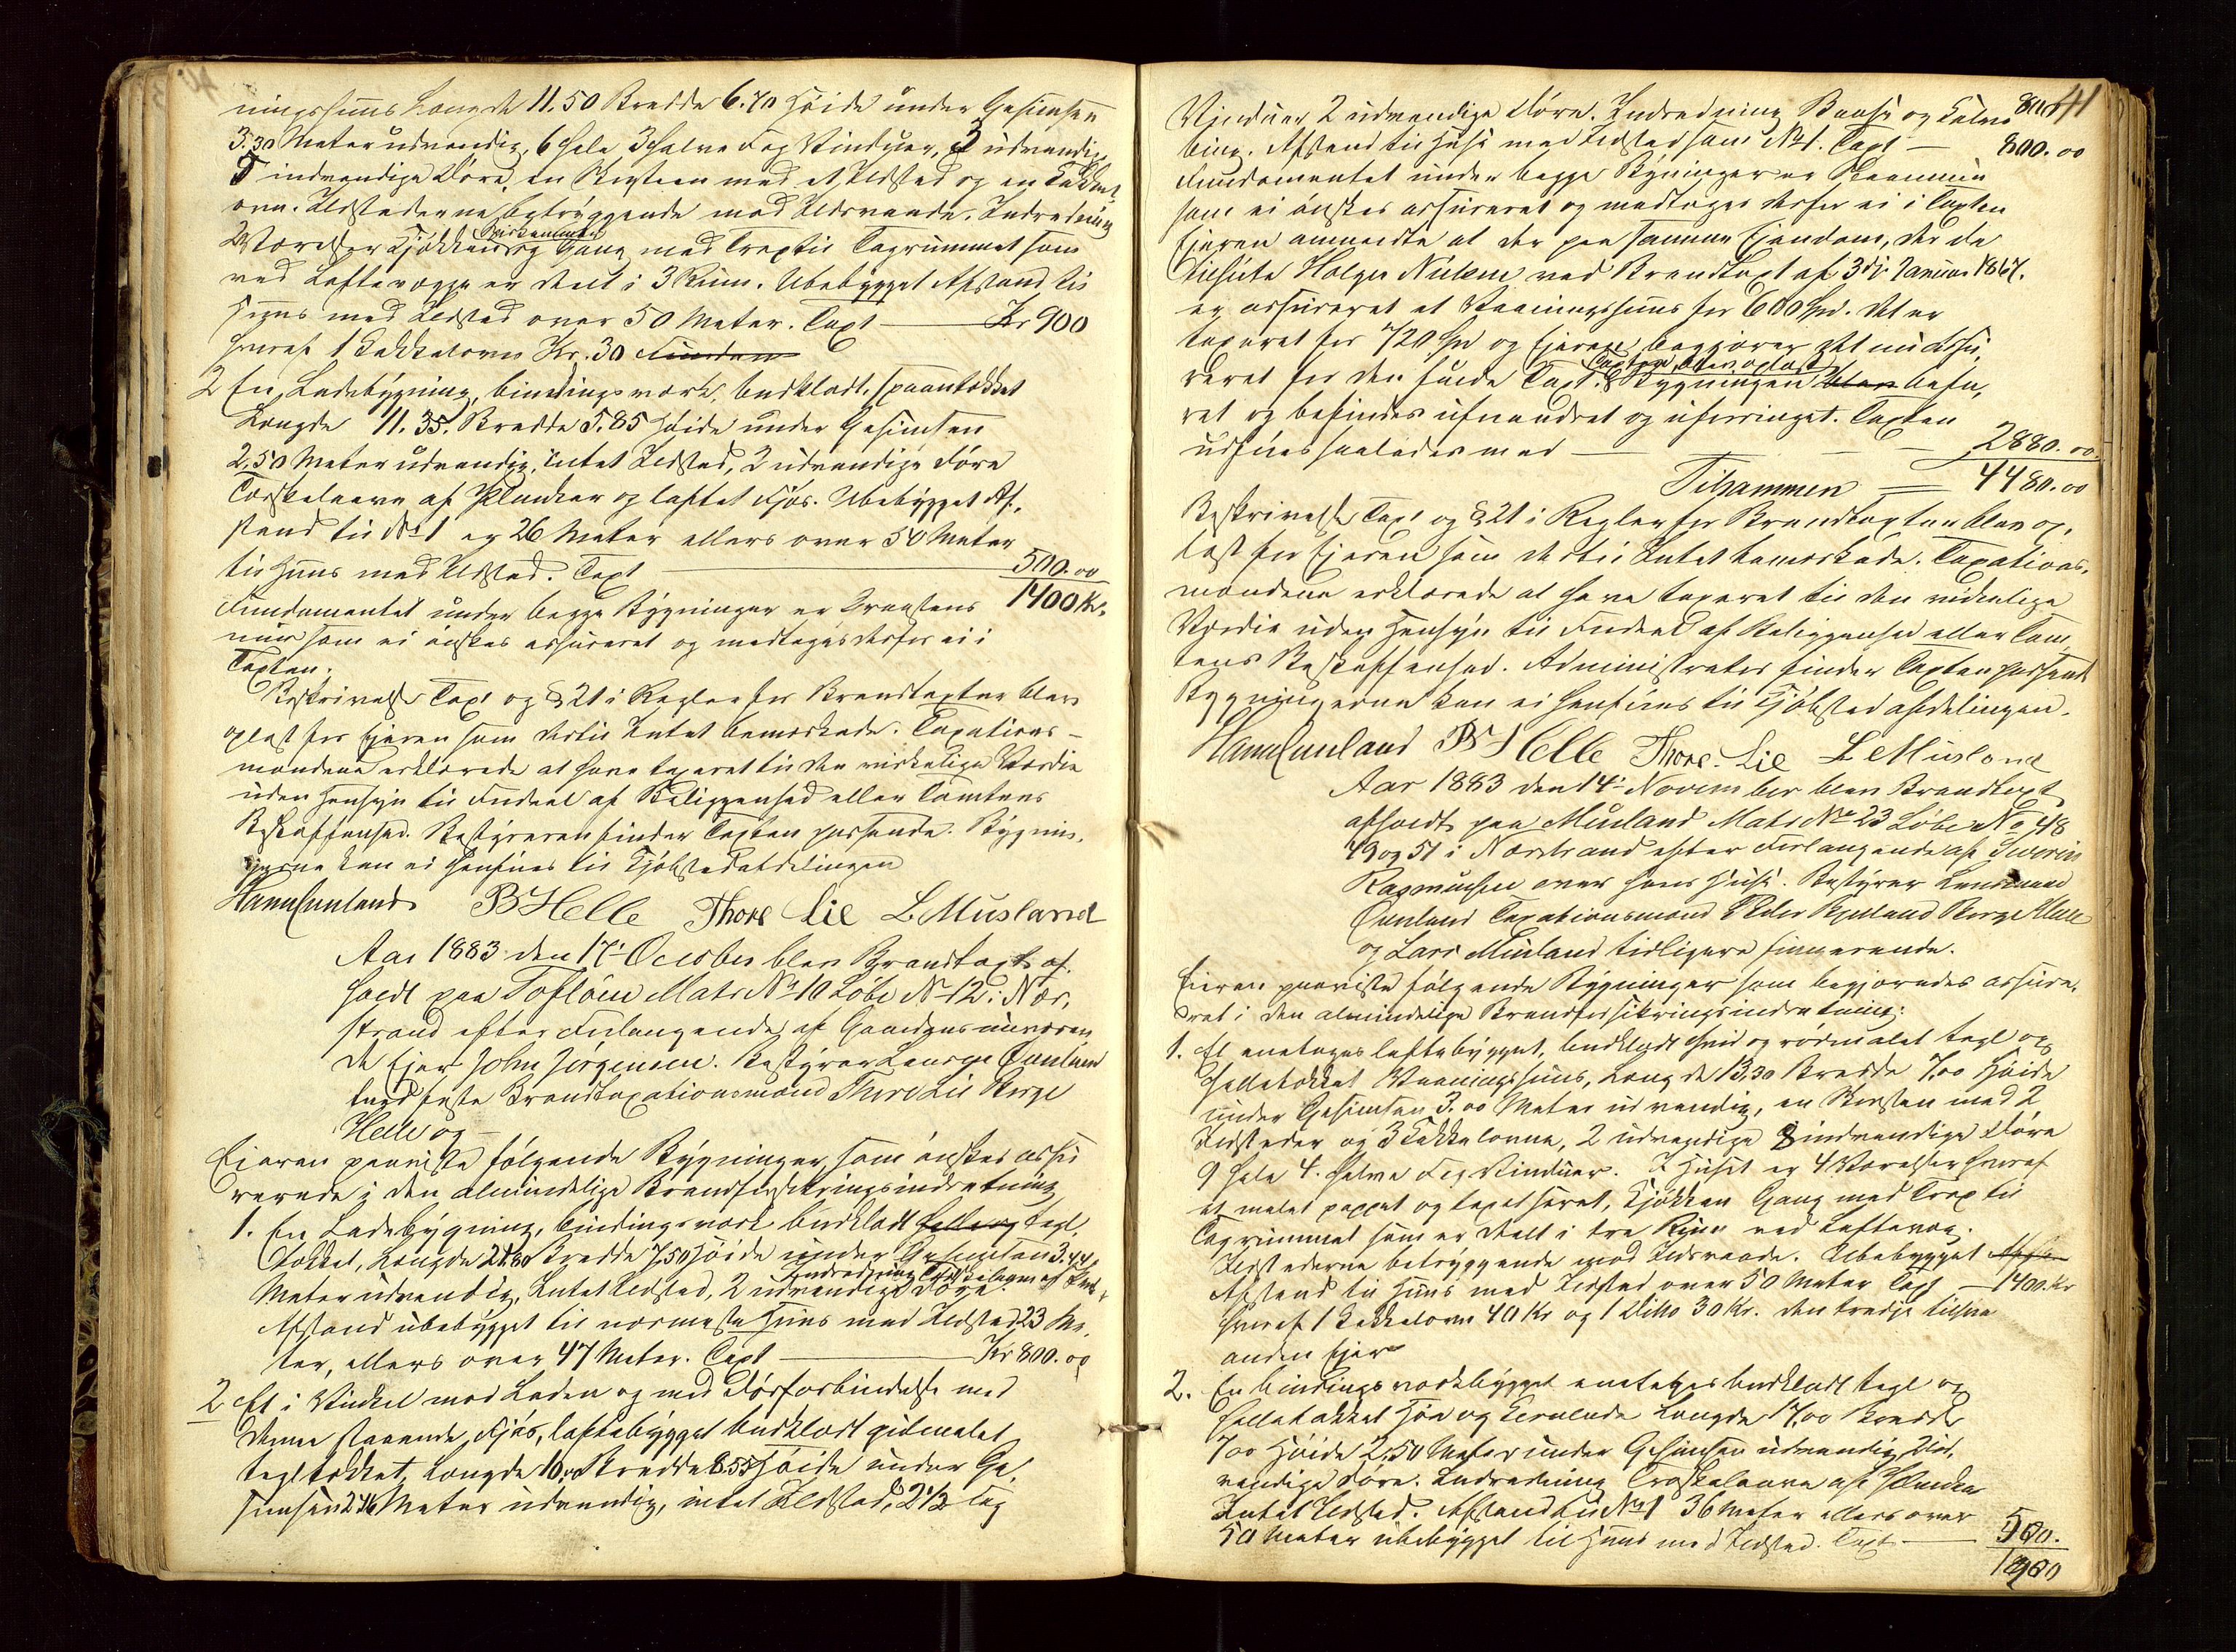 ningshuus Længde 11.50 Bredde 6.70 Høide under Gesimsen
3.30 Meter udvendig, 6 hele 3 halve Fag Vinduer, 3 udvendige
5 indvendige Døre, en Skorsten med et Ildsted og en Kakkel-
ovn. Ildstederne betryggende mod Ildsvaade. Indredning
2 Værelser Kjøkken og Gang med Trap til Tagrummet som
ved Loftevægge er deelt i 3 Rum. Ubebygget Afstand til
Huus med Ildsted over 50 Meter. Taxt — Kr 900
hvoraf 1 Kakkelovn Kr. 30
2 En Ladebygning, bindingsværk, bordklædt, spaantækket
Længde 11.35. Bredde 5.85 Høide under Gesimsen
2,50 Meter udvendig, intet Ildsted, 2 udvendige Døre
Tærskelaave af Planker og loftet Fjøs. Ubebygget Af-
stand til No 1 er 26 Meter ellers over 50 Meter
til Huus med Ildsted. Taxt — 500.00
1400 Kr.
Fundamentet under begge Bygninger er Graastens
muur som ei ønskes assureret og medtages derfor ei i
Taxten.
Beskrivelse Taxt og § 21 i Regler for Brandtaxter blev
oplæst for Ejeren som dertil Intet bemærkede. Taxations-
mændene erklærede at have taxeret til den virkelige Værdie
uden Hensyn til Fordeel af Beliggenhed eller Tomtens
Beskaffenhed. Bestyreren finder Taxten passende. Bygnin-
gerne kan ei henføres til Kjøbstedafdelingen
B Helle Thore Lie L. Musland
Aar 1883 den 17' October blev Brandtaxt af-
holdt paa Tofløen Matr No 10 Løbe No 12 i Nær-
strand efter Forlangende af Gaardens nuværen
de Ejer John Jørgensen. Bestyrer Lensm
med faste Brandtaxationsmænd Thore Lie Børge
Helle og —
Ejeren paaviste følgende Bygninger, som ønskes assu
rerede i den almindelige Brandforsikringsindretning
1. En Ladebygning, bindingsværk bordklædt Helle og tegl
tækket, Længde 21.80 Bredde 7,50 Høide under Gesimsen 3.44
Meter udvendig, Intet Ildsted, 2 udvendige Døre.
Afstand ubebygget til nærmeste Huus med Ildsted 23 Me-
ter, ellers over 47 Meter. Taxt — Kr 800.00
2 Et i Vinkel mod Laden og med Dørforbindelse med
denne staaende Fjøs, loftebygget bordklædt gulmalet
tegltækket, Længde 10, Bredde 8.55 Høide under Ge-
simsen 2.46 Meter udvendig, intet Ildsted, 2 1/2 Fag
41
Vinduer 2 udvendige Døre. Indredning Baase og Kalve 800
bing. Afstand til Huse med Ildsted som No 1. Taxt — 800.00
Fundamentet under begge Bygninger er Steenmuur
som ei ønskes assureret og medtages derfor ei i Taxten
Ejeren anmeldte at der paa samme Eiendom, der da
tilhørte Holger Nielsen ved Brandtaxt af 3die Januar 1867.
er assureret et Vaaningshuus for 600 Spd. Det er
taxeret for 720 Spd og Ejeren begjærer det nu assu-
reret for den fulde Taxt. Taxten blev oplæst Bygningen blev besee-
ret og befindes uforandret og uforringet. Taxten
udføres saaledes med — 2880.00
Tilsammen — 4480.00
Beskrivelse Taxt og § 21 i Regler for Brandtaxter blev op-
læst for Ejeren som dertil Intet bemærkede. Taxations-
mændene erklærede at have taxeret til den virkelige
Værdie uden Hensyn til Fordeel af Beliggenhed eller Tom-
tens Beskaffenhed. Administrator finder Taxten passende
Bygningerne kan ei henføres til Kjøbstedafdelingen.
B Helle Thore Lie L Musland
Aar 1883 den 14' November blev Brandtaxt
afholdt paa Musland Matr No 23 Løbe No 48
49 og 51 i Nærstrand efter Forlangende af
Rasmussen over hans Huse. Bestyrer Lensmand
Taxationsmænd Peder Børge Helle
og Lars Musland tidligere fungerende.
Eieren paaviste følgende Bygninger som begjæredes assure-
ret i den almindelige Brandforsikringsindretning:
1. Et enetages loftebygget, bordklædt hvid og rødmalet tegl og
helletækket Vaaningshuus, Længde 13,30 Bredde 7,00 Høide
under Gesimsen 3.00 Meter udvendig, en Skorsten med 2
Ildsteder og 3 Kakkelovne, 2 udvendige 8 indvendige Døre
9 hele 4 halve Fag Vinduer. I Huset er 4 Værelser hvoraf
et malet pappet og tapetseret, Kjøkken Gang med Trap til
Tagrummet som er deelt i tre Rum ved Loftevæg.
Ildstederne betryggende mod Ildsvaade. Ubebygget
Afstand til Huus med Ildsted over 50 Meter Taxt — 1400. Kr
hvoraf 1 Kakkelovn 40 Kr og 1 Ditto 30 Kr. den tredje tilhører
anden Ejer
2. En bindingsværksbygget enetages bordklædt tegl og
helletækket Høe og Kornlade Længde 17,00 Bredde
7,00 Høide 2,50 Meter under Gesimsen udvendig, 2 ud-
vendige Døre. Indredning Træskelaave af Planker
Intet Ildsted. Afstand til No 1 36 Meter ellers over
50 Meter ubebygget til Huus med Ildsted. Taxt — 500.
1900